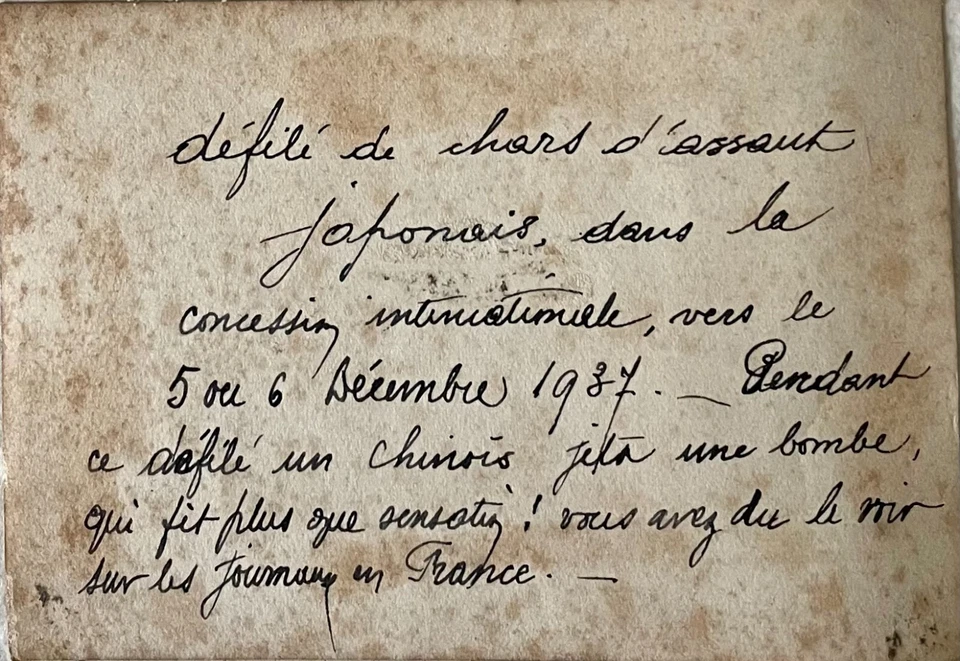 défilé de chars d'assaut
japonais, dans la
concession internationale, vers le
5 ou 6 Décembre 1937. — Pendant
ce défilé un Chinois jeta une bombe,
qui fit plus que sensation ! vous avez du le voir
sur les journaux en France. —